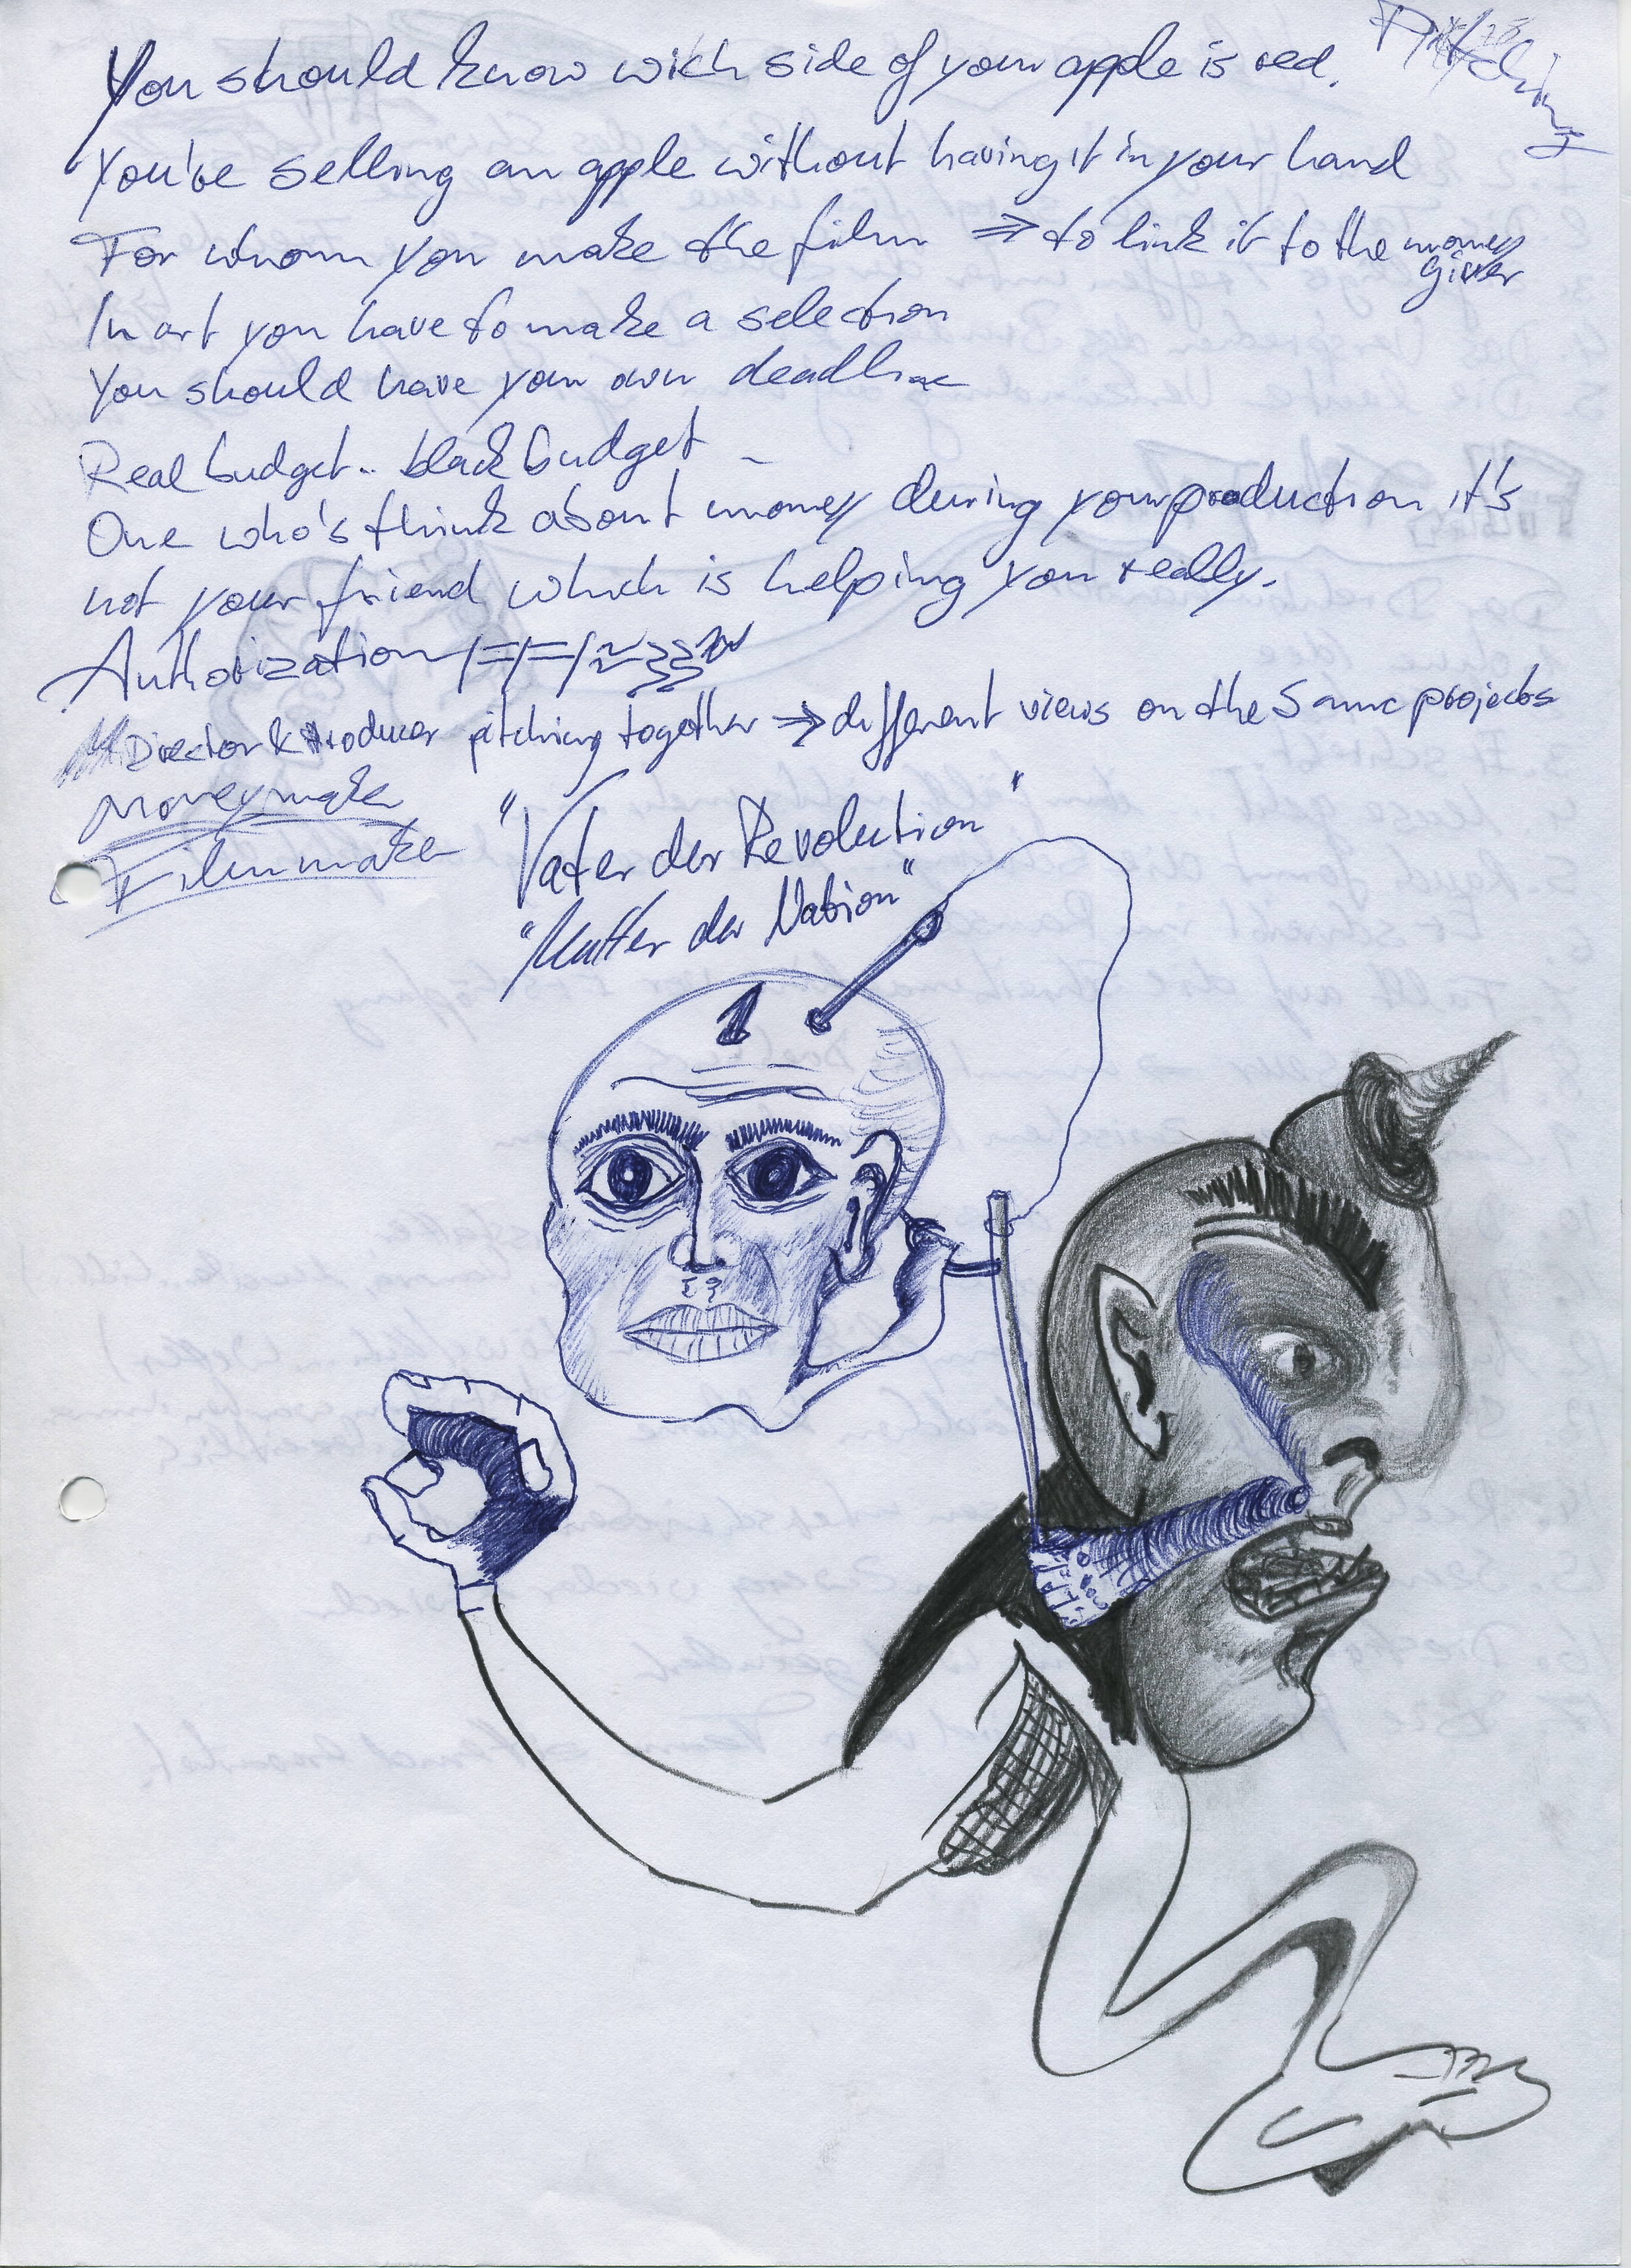 Pitching
You should know wich side of your apple is red.
You've selling an apple without having it in your hand
For whom you make the film ⇒ to link it to the money giver
In art you have to make a selection
You should have your own deadline
Real budget.. black budget
One who's think about money during your production it's
not your friend which is helping you really.
Authorization
Director & Producer pitching together ⇒ different views on the Same projects
Moneymaker
Filmmaker
"Vater der Revolution"
"Mutter der Nation"
1